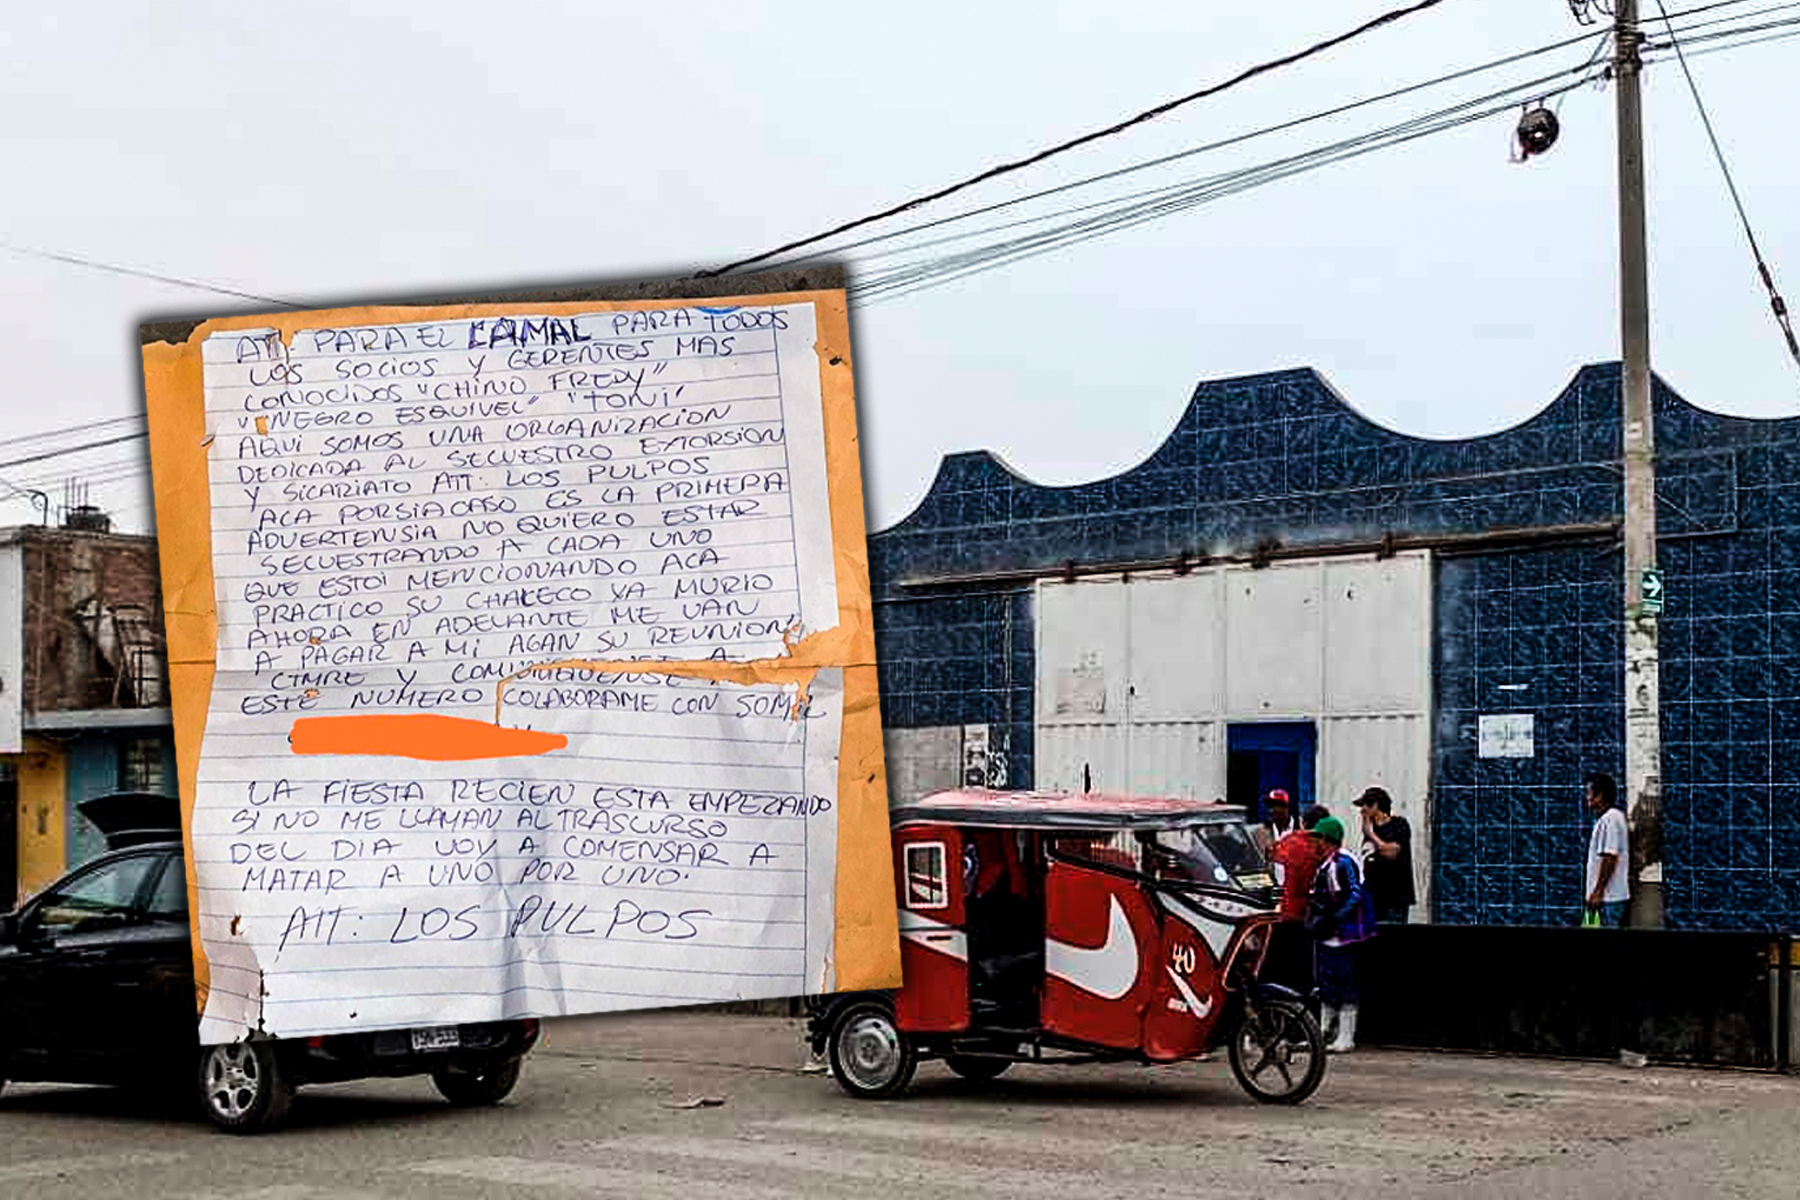 ATT: PARA EL CAMAL PARA TODOS
LOS SOCIOS Y GERENTES MAS
CONOCIDOS "CHINO FREDY"
"NEGRO ESQUIVEL" "TONI"
AQUI SOMOS UNA ORGANIZACION
DEDICADA AL SECUESTRO EXTORSION
Y SICARIATO ATT: LOS PULPOS
ACA PORSIACASO ES LA PRIMERA
ADVERTENSIA NO QUIERO ESTAR
SECUESTRANDO A CADA UNO
QUE ESTOI MENCIONANDO ACA
PRACTICO SU CHALECO YA MURIO
AHORA EN ADELANTE ME VAN
A PAGAR A MI AGAN SU REUNION
CTMRE Y COMUNIQUENSE A
ESTE NUMERO COLABORAME CON
LA FIESTA RECIEN ESTA EMPEZANDO
SI NO ME LLAMAN AL TRASCURSO
DEL DIA VOY A COMENSAR A
MATAR A UNO POR UNO.
ATT: LOS PULPOS
40